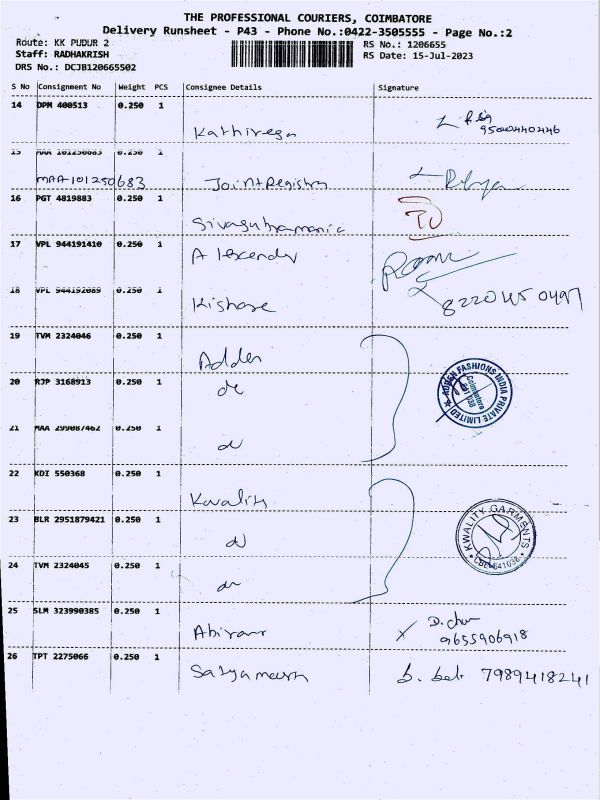 THE PROFESSIONAL COURIERS, COIMBATORE
Delivery Runsheet - P43 - Phone No.:0422-3505555 - Page No.:2
Route: KK PUDUR 2
RS No.: 1206655
Staff: RADHAKRISH
RS Date: 15-Jul-2023
DRS No.: DCJB120665502
S No Consignment No Weight PCS Consignee Details Signature
14 DPM 400513 0.250 1
Kathiresan
9500440446
15 MAA 101250683 0.250 1
MAA101250683 Joint Registry
16 PGT 4819883 0.250 1
Sivasubramania
17 VPL 944191410 0.250 1
Alexander
18 VPL 944192089 0.250 1
Kishore
19 TVM 2324046 0.250 1
Adden
ADDEN FASHIONS INDIA PRIVATE LIMITED
Coimbatore
20 RJP 3168913 0.250 1
do
21 MAA 299087462 0.250 1
do
22 KDI 550368 0.250 1
Kwality
23 BLR 2951879421 0.250 1
do
KWALITY GARMENTS
CBE-641038
24 TVM 2324045 0.250 1
do
25 SLM 323990385 0.250 1
9655906918
26 TPT 2275066 0.250 1
7989418241